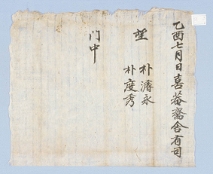 乙酉七月日喜菴齋舍有司
望
朴濬永
朴度秀
門中